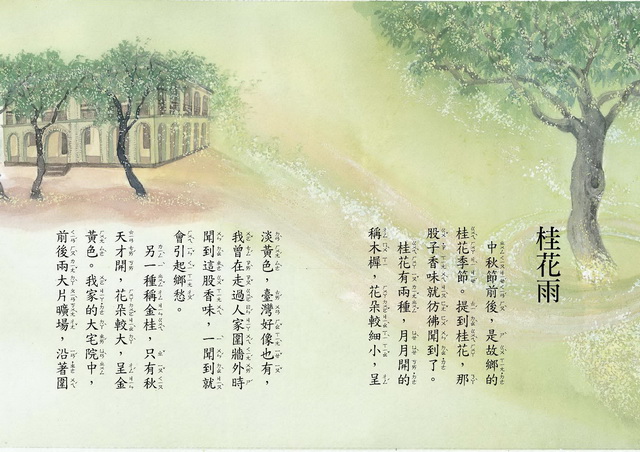 桂花雨
中秋節前後，是故鄉的
桂花季節。提到桂花，那
股子香味就彷彿聞到了。
桂花有兩種，月月開的
稱木樨，花朵較細小，呈
淡黃色，臺灣好像也有，
我曾在走過人家圍牆外時
聞到這股香味，一聞到就
會引起鄉愁。
另一種稱金桂，只有秋
天才開，花朵較大，呈金
黃色。我家的大宅院中，
前後兩大片曠場，沿著圍